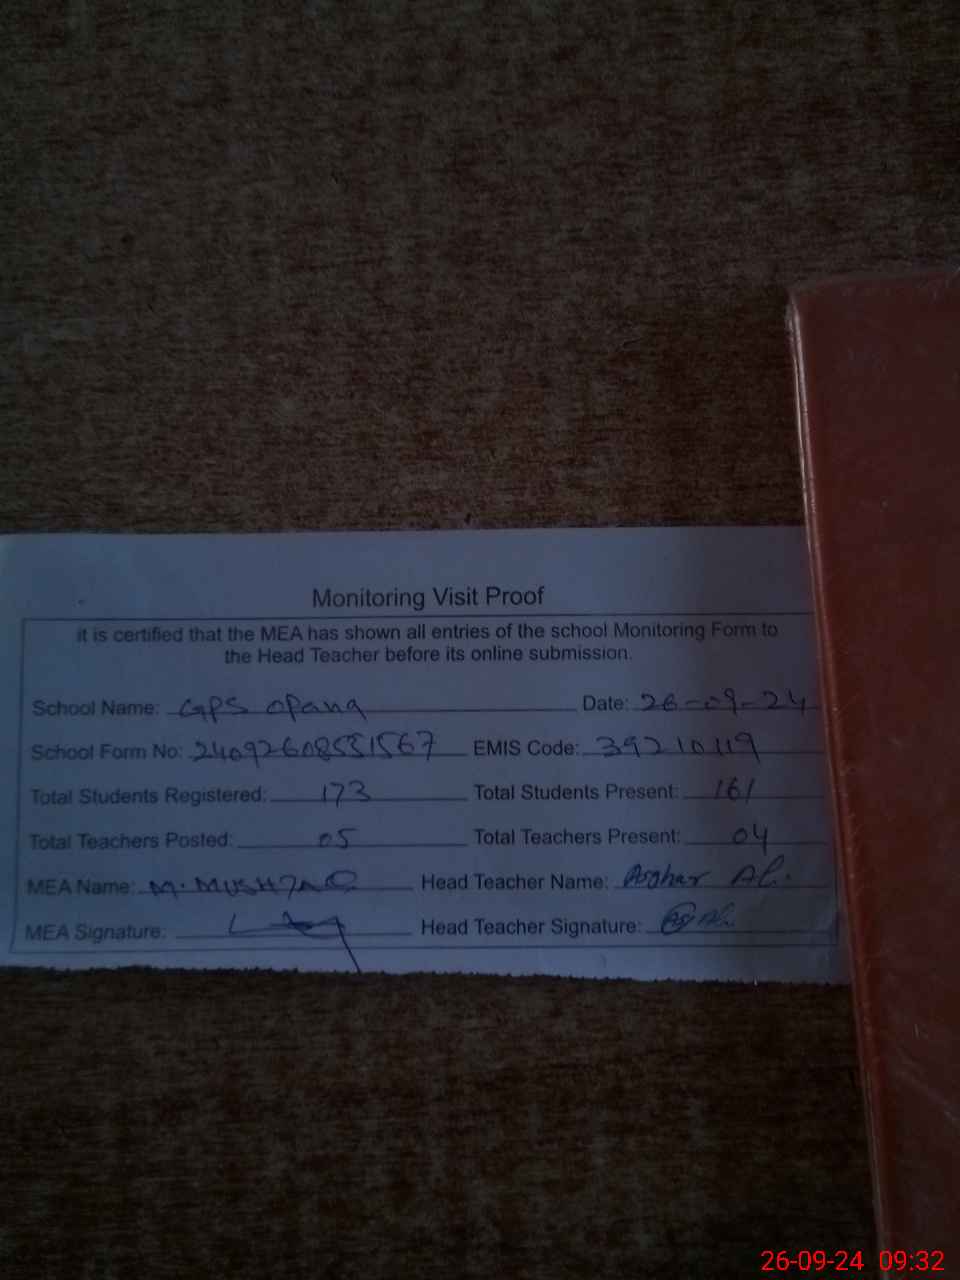 Monitoring Visit Proof
it is certified that the MEA has shown all entries of the school Monitoring Form to
the Head Teacher before its online submission.
School Name: GPS Opang Date: 26-09-24
School Form No: 24092608551567 EMIS Code: 39210119
Total Students Registered: 173 Total Students Present: 161
Total Teachers Posted: 05 Total Teachers Present: 04
MEA Name: M. MUSHTAQ Head Teacher Name: Asghar Ali.
MEA Signature: Head Teacher Signature:
26-09-24 09:32